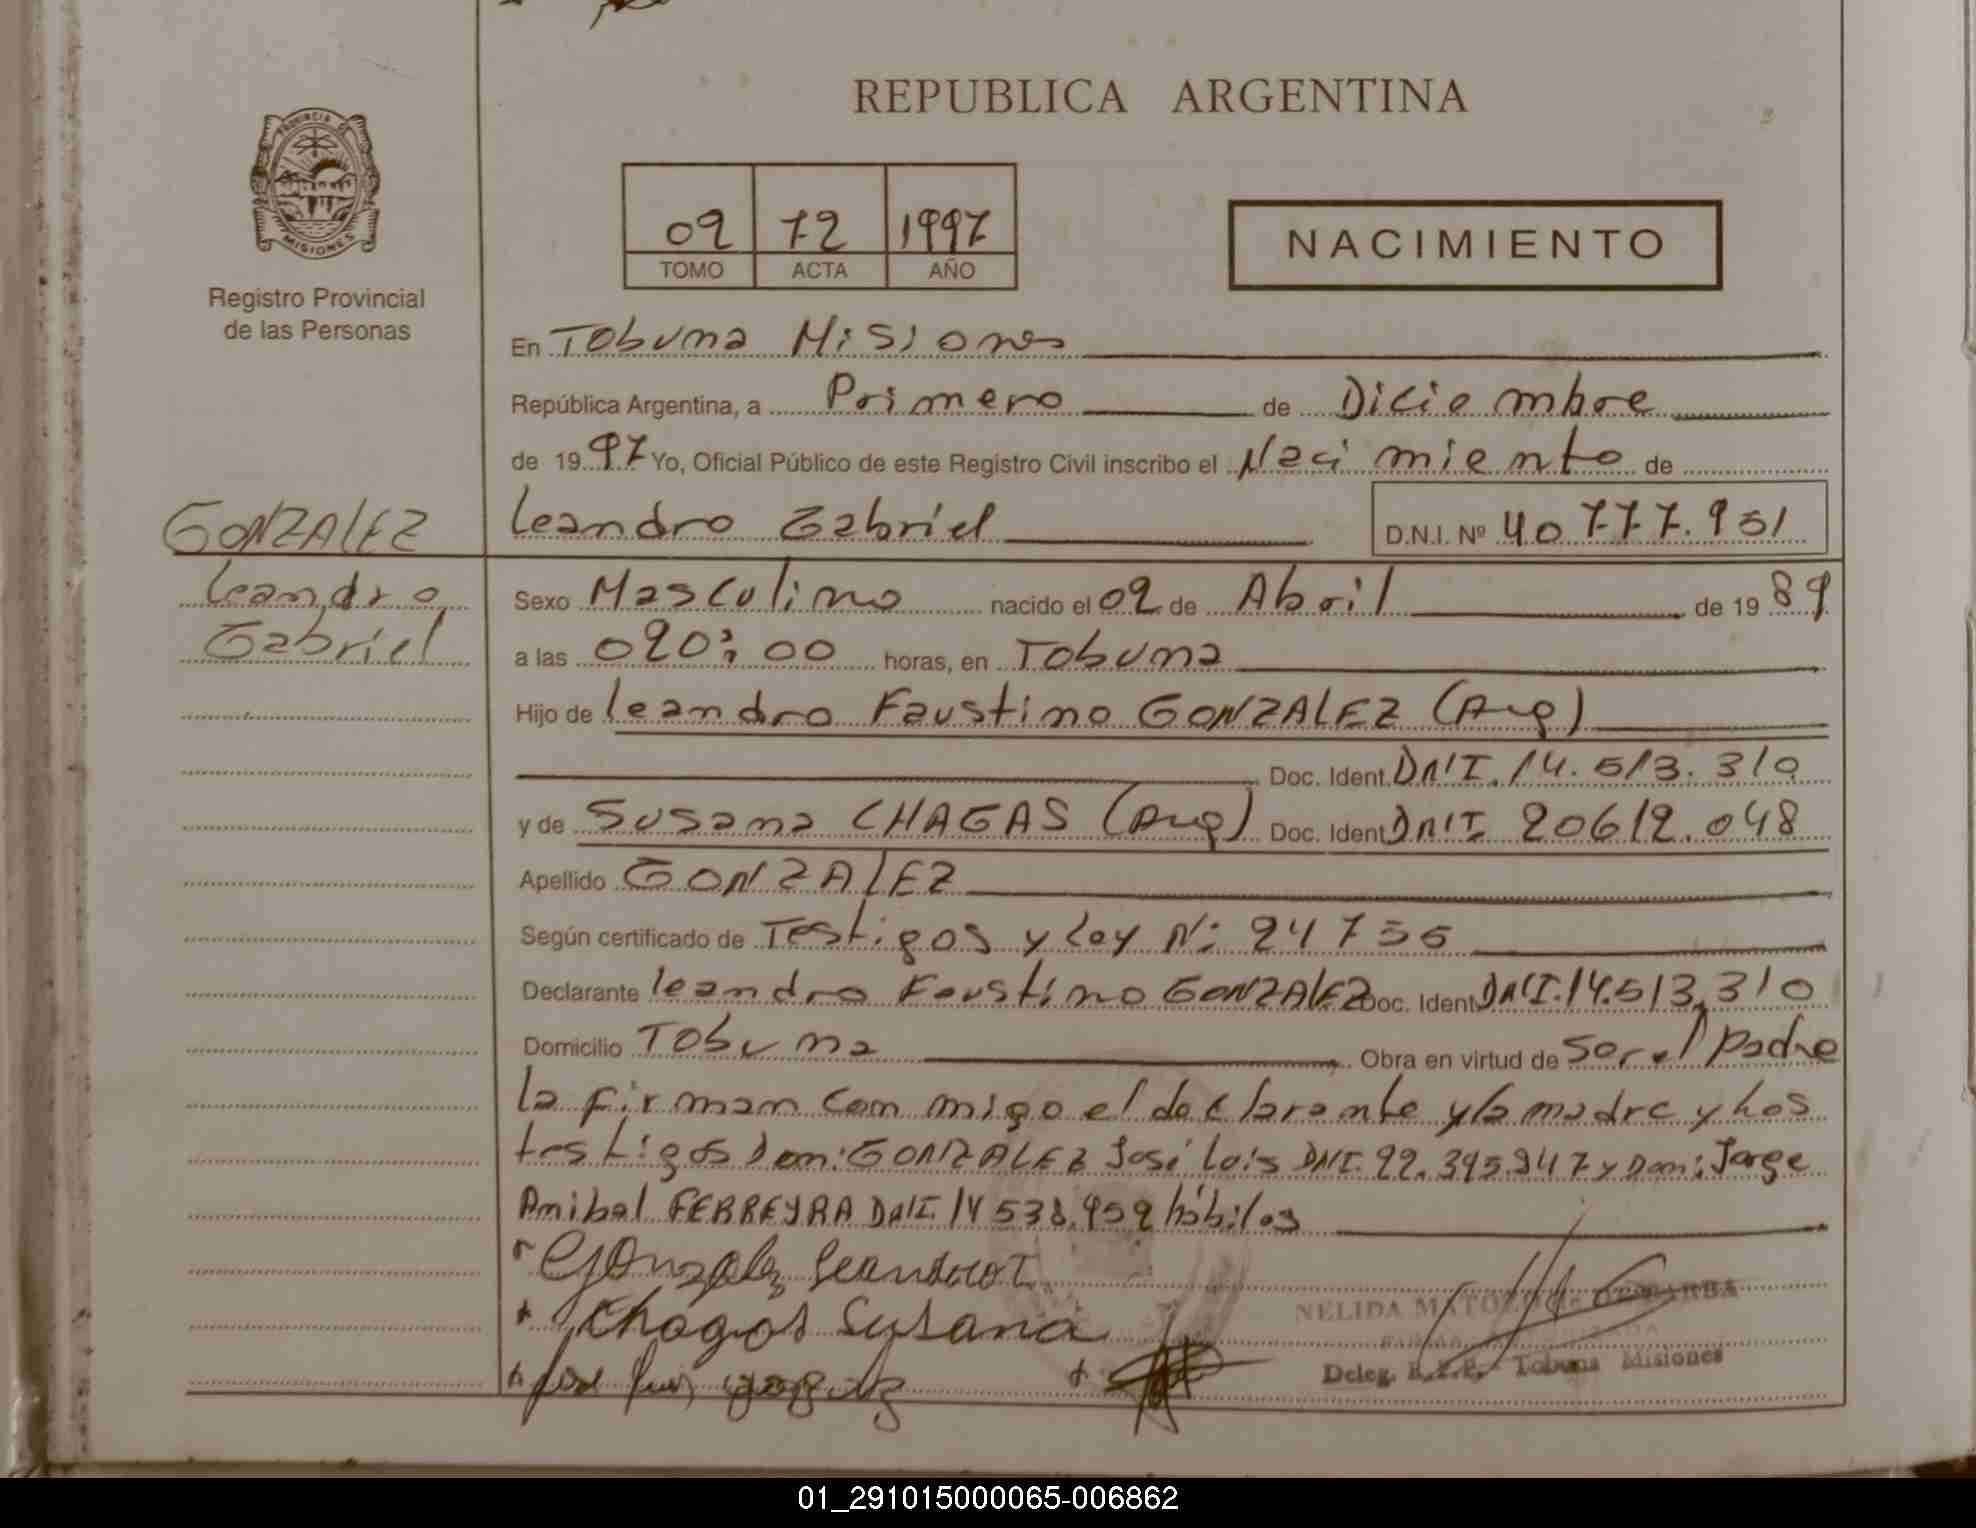 REPUBLICA ARGENTINA
PROVINCIA DE
MISIONES
Registro Provincial
de las Personas
09 72 1997
TOMO ACTA AÑO
NACIMIENTO
En Tobuna Misiones
República Argentina, a Primero de Diciembre
de 1997 Yo, Oficial Público de este Registro Civil inscribo el Nacimiento de
GONZALEZ
Leandro Gabriel
D.N.I. Nº 40.777.951
Leandro
Gabriel
Sexo Masculino nacido el 02 de Abril de 1989
a las 020:00 horas, en Tobuna
Hijo de Leandro Faustino GONZALEZ (Arg)
Doc. Ident. DNI. 14.513.310
y de Susana CHAGAS (Arg) Doc. Ident. DNI. 20612.048
Apellido GONZALEZ
Según certificado de Testigos y Ley Nº: 24755
Declarante Leandro Faustino GONZALEZ Doc. Ident. DNI. 14.513.310
Domicilio Tobuna Obra en virtud de Ser el Padre
la firman con migo el declarante y la madre y los
testigos Don: GONZALEZ José Luis DNI. 22.395.947 y Don: Jorge
Anibal FERREYRA DNI. 14538.959 hábiles
Gonzalez Leandro F
Chagas Susana
NELIDA
Deleg. R.P.P. - Tobuna Misiones
01_291015000065-006862